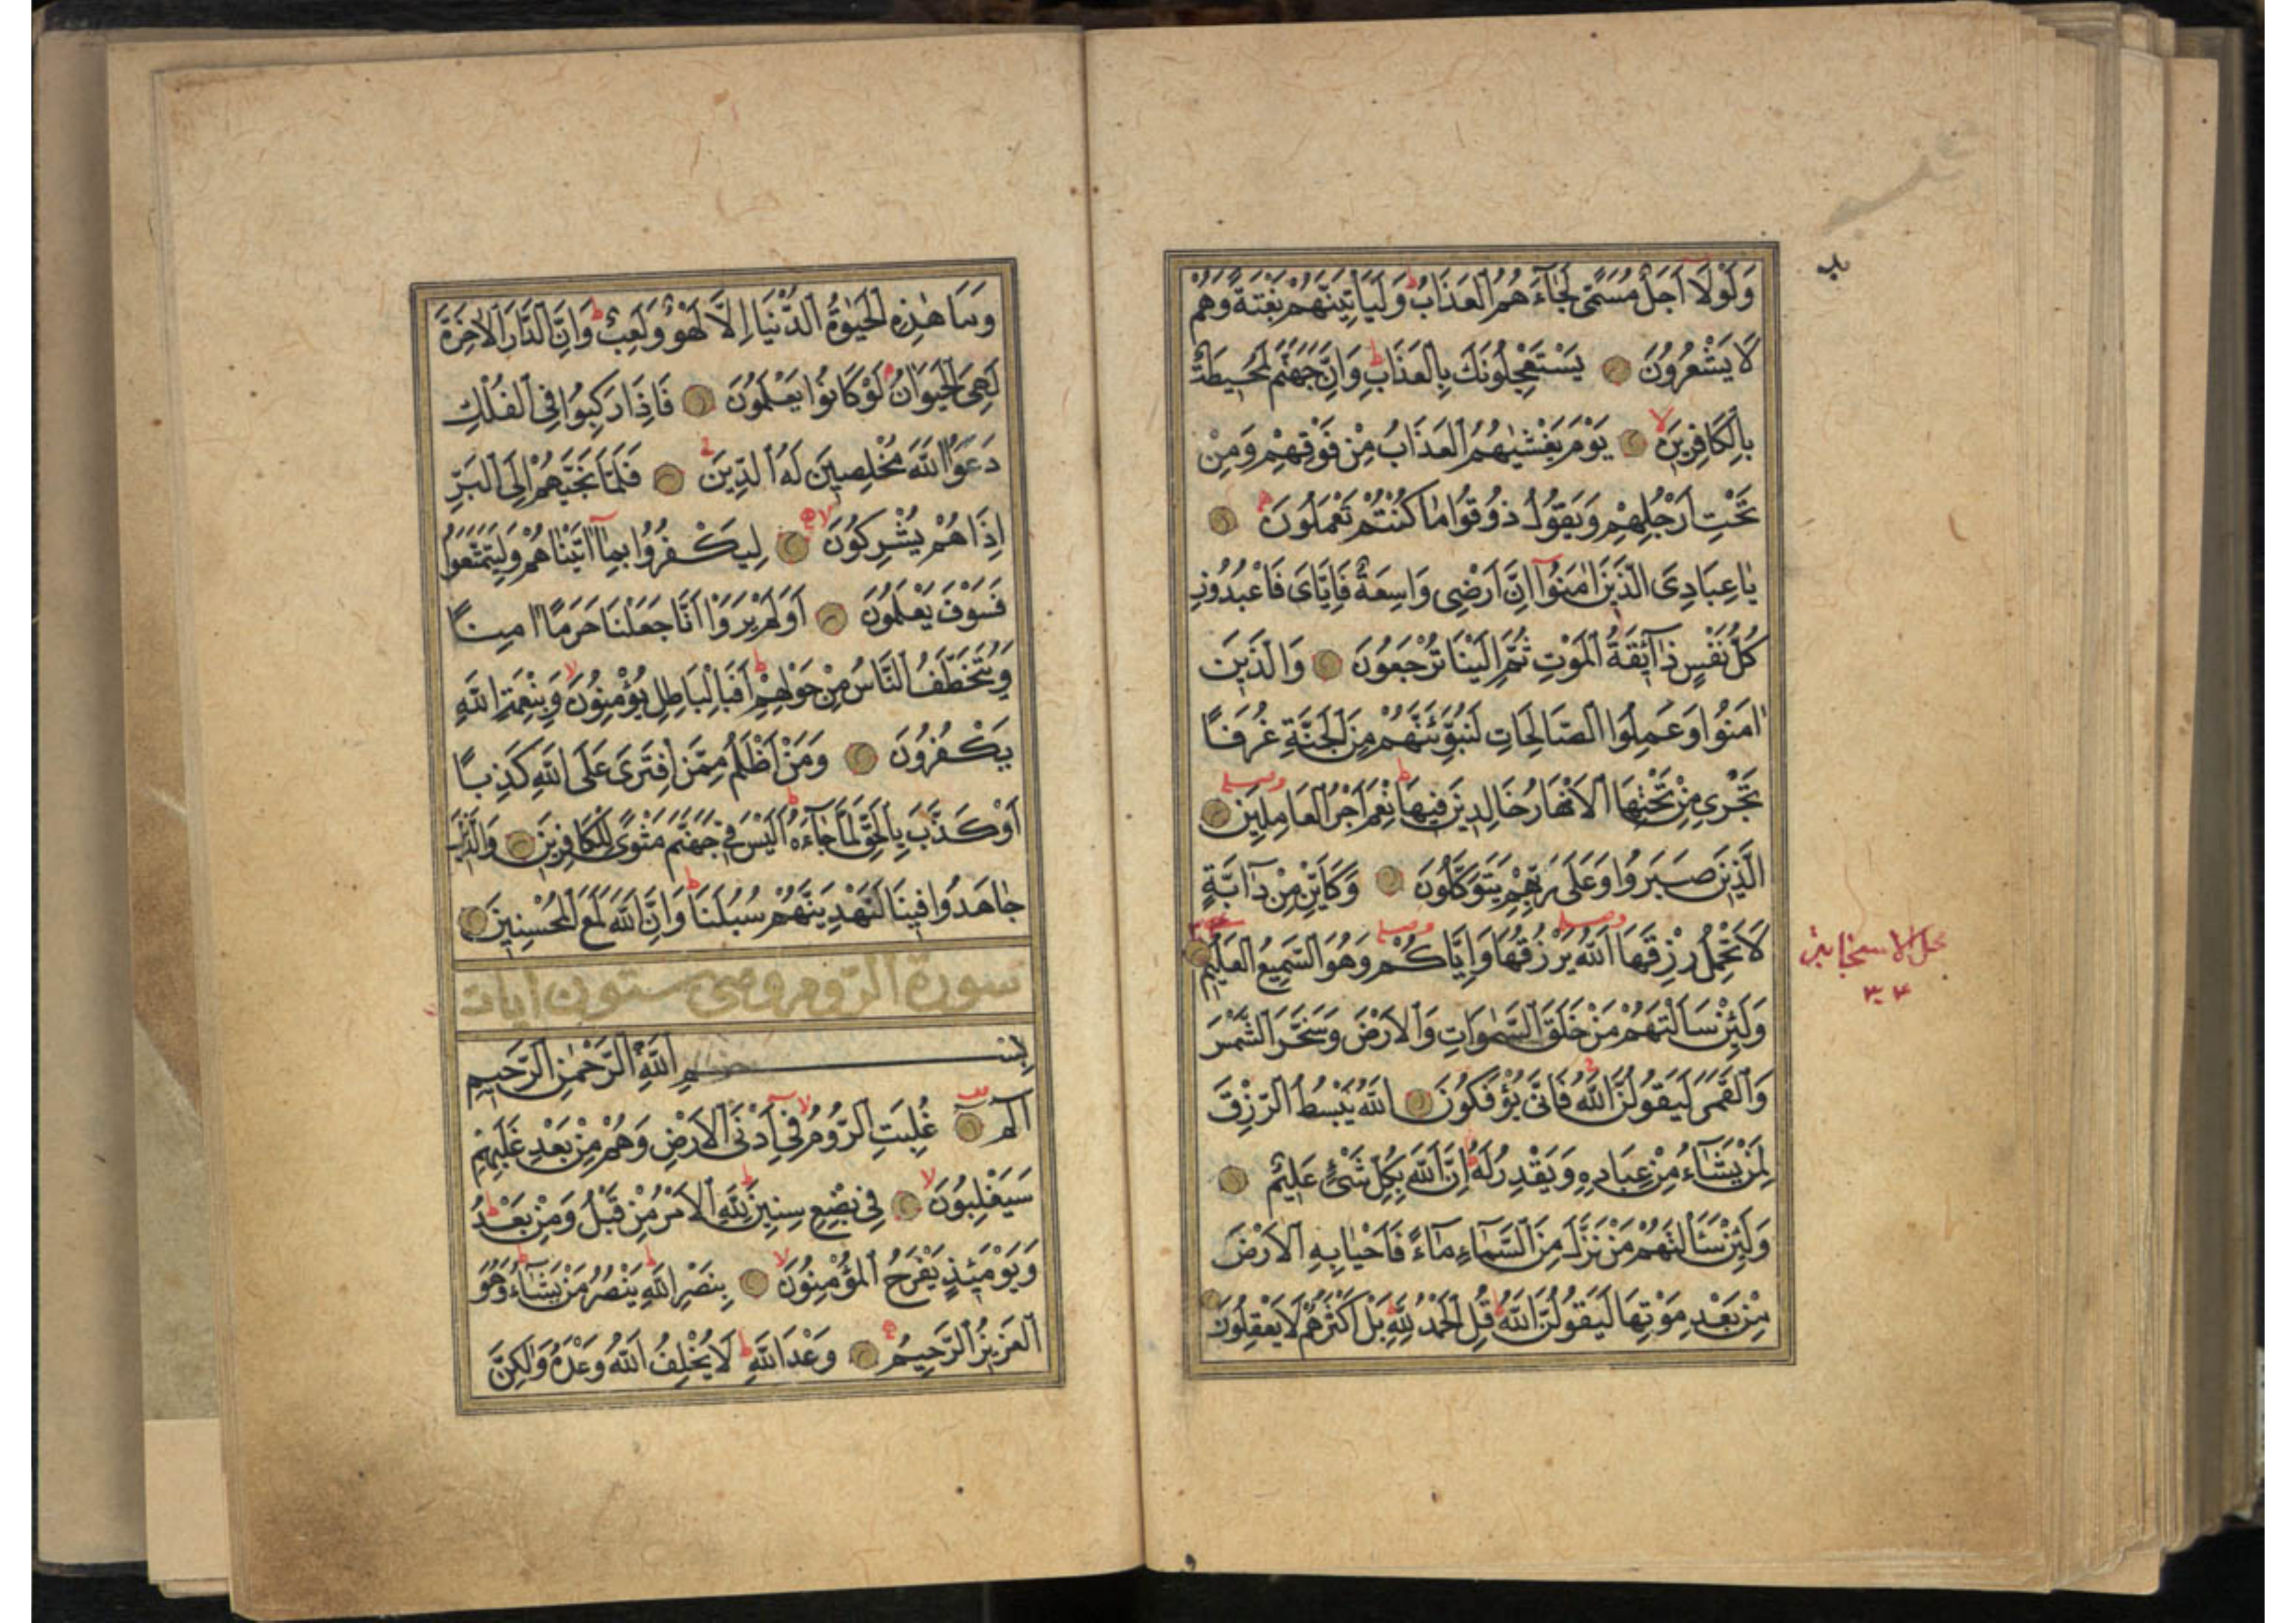 وَلَوْلَا اَجَلٌ مُسَمًّى لَجَاءَهُمُ الْعَذَابُ وَلَيَأْتِيَنَّهُمْ بَغْتَةً وَهُمْ
لَا يَشْعُرُونَ يَسْتَعْجِلُونَكَ بِالْعَذَابِ وَاِنَّ جَهَنَّمَ لَمُحِيطَةٌ
بِالْكَافِرِينَ يَوْمَ يَغْشٰيهُمُ الْعَذَابُ مِنْ فَوْقِهِمْ وَمِنْ
تَحْتِ اَرْجُلِهِمْ وَيَقُولُ ذُوقُوا مَا كُنْتُمْ تَعْمَلُونَ
يَا عِبَادِيَ الَّذِينَ اٰمَنُوا اِنَّ اَرْضِى وَاسِعَةٌ فَاِيَّاىَ فَاعْبُدُونِ
كُلُّ نَفْسٍ ذَآئِقَةُ الْمَوْتِ ثُمَّ اِلَيْنَا تُرْجَعُونَ وَالَّذِينَ
اٰمَنُوا وَعَمِلُوا الصَّالِحَاتِ لَنُبَوِّئَنَّهُمْ مِنَ الْجَنَّةِ غُرَفًا
تَجْرِى مِنْ تَحْتِهَا الْاَنْهَارُ خَالِدِينَ فِيهَا نِعْمَ اَجْرُ الْعَامِلِينَ
الَّذِينَ صَبَرُوا وَعَلٰى رَبِّهِمْ يَتَوَكَّلُونَ وَكَاَيِّنْ مِنْ دَآبَّةٍ
لَا تَحْمِلُ رِزْقَهَا اَللّٰهُ يَرْزُقُهَا وَاِيَّاكُمْ وَهُوَ السَّمِيعُ الْعَلِيمُ
وَلَئِنْ سَاَلْتَهُمْ مَنْ خَلَقَ السَّمٰوَاتِ وَالْاَرْضَ وَسَخَّرَ الشَّمْسَ
وَالْقَمَرَ لَيَقُولُنَّ اللّٰهُ فَاَنّٰى يُؤْفَكُونَ اَللّٰهُ يَبْسُطُ الرِّزْقَ
لِمَنْ يَشَاءُ مِنْ عِبَادِهِ وَيَقْدِرُ لَهُ اِنَّ اللّٰهَ بِكُلِّ شَىْءٍ عَلِيمٌ
وَلَئِنْ سَاَلْتَهُمْ مَنْ نَزَّلَ مِنَ السَّمَاءِ مَاءً فَاَحْيَا بِهِ الْاَرْضَ
مِنْ بَعْدِ مَوْتِهَا لَيَقُولُنَّ اللّٰهُ قُلِ الْحَمْدُ لِلّٰهِ بَلْ اَكْثَرُهُمْ لَا يَعْقِلُونَ
وَمَا هٰذِهِ الْحَيٰوةُ الدُّنْيَا اِلَّا لَهْوٌ وَلَعِبٌ وَاِنَّ الدَّارَ الْاٰخِرَةَ
لَهِىَ الْحَيَوَانُ لَوْ كَانُوا يَعْلَمُونَ فَاِذَا رَكِبُوا فِى الْفُلْكِ
دَعَوُا اللّٰهَ مُخْلِصِينَ لَهُ الدِّينَ فَلَمَّا نَجّٰيهُمْ اِلَى الْبَرِّ
اِذَا هُمْ يُشْرِكُونَ لِيَكْفُرُوا بِمَا اٰتَيْنَاهُمْ وَلِيَتَمَتَّعُوا
فَسَوْفَ يَعْلَمُونَ اَوَلَمْ يَرَوْا اَنَّا جَعَلْنَا حَرَمًا اٰمِنًا
وَيُتَخَطَّفُ النَّاسُ مِنْ حَوْلِهِمْ اَفَبِالْبَاطِلِ يُؤْمِنُونَ وَبِنِعْمَةِ اللّٰهِ
يَكْفُرُونَ وَمَنْ اَظْلَمُ مِمَّنِ افْتَرٰى عَلَى اللّٰهِ كَذِبًا
اَوْ كَذَّبَ بِالْحَقِّ لَمَّا جَاءَهُ اَلَيْسَ فِى جَهَنَّمَ مَثْوًى لِلْكَافِرِينَ وَالَّذِينَ
جَاهَدُوا فِينَا لَنَهْدِيَنَّهُمْ سُبُلَنَا وَاِنَّ اللّٰهَ لَمَعَ الْمُحْسِنِينَ
سورة الروم وهى ستون ايات
بِسْمِ اللّٰهِ الرَّحْمٰنِ الرَّحِيمِ
الٓمٓ غُلِبَتِ الرُّومُ فِى اَدْنَى الْاَرْضِ وَهُمْ مِنْ بَعْدِ غَلَبِهِمْ
سَيَغْلِبُونَ فِى بِضْعِ سِنِينَ لِلّٰهِ الْاَمْرُ مِنْ قَبْلُ وَمِنْ بَعْدُ
وَيَوْمَئِذٍ يَفْرَحُ الْمُؤْمِنُونَ بِنَصْرِ اللّٰهِ يَنْصُرُ مَنْ يَشَاءُ وَهُوَ
الْعَزِيزُ الرَّحِيمُ وَعْدَ اللّٰهِ لَا يُخْلِفُ اللّٰهُ وَعْدَهُ وَلٰكِنَّ